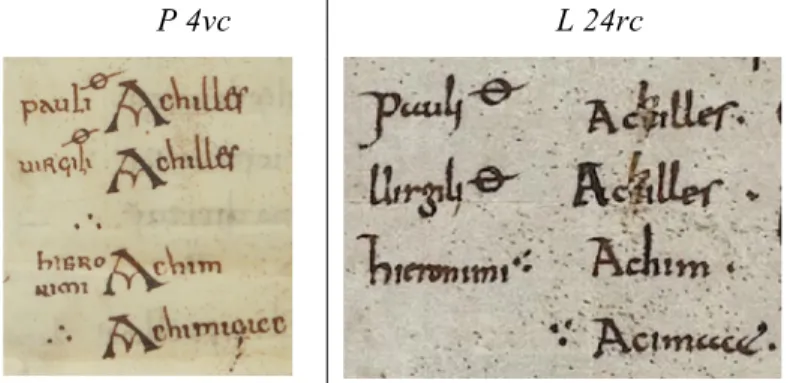 P 4vc
L 24rc
pauli Achilles
uirgili Achilles
hiero
nimi Achim
Pauli Achilles.
Uirgili Achilles.
hieronimi Achim.